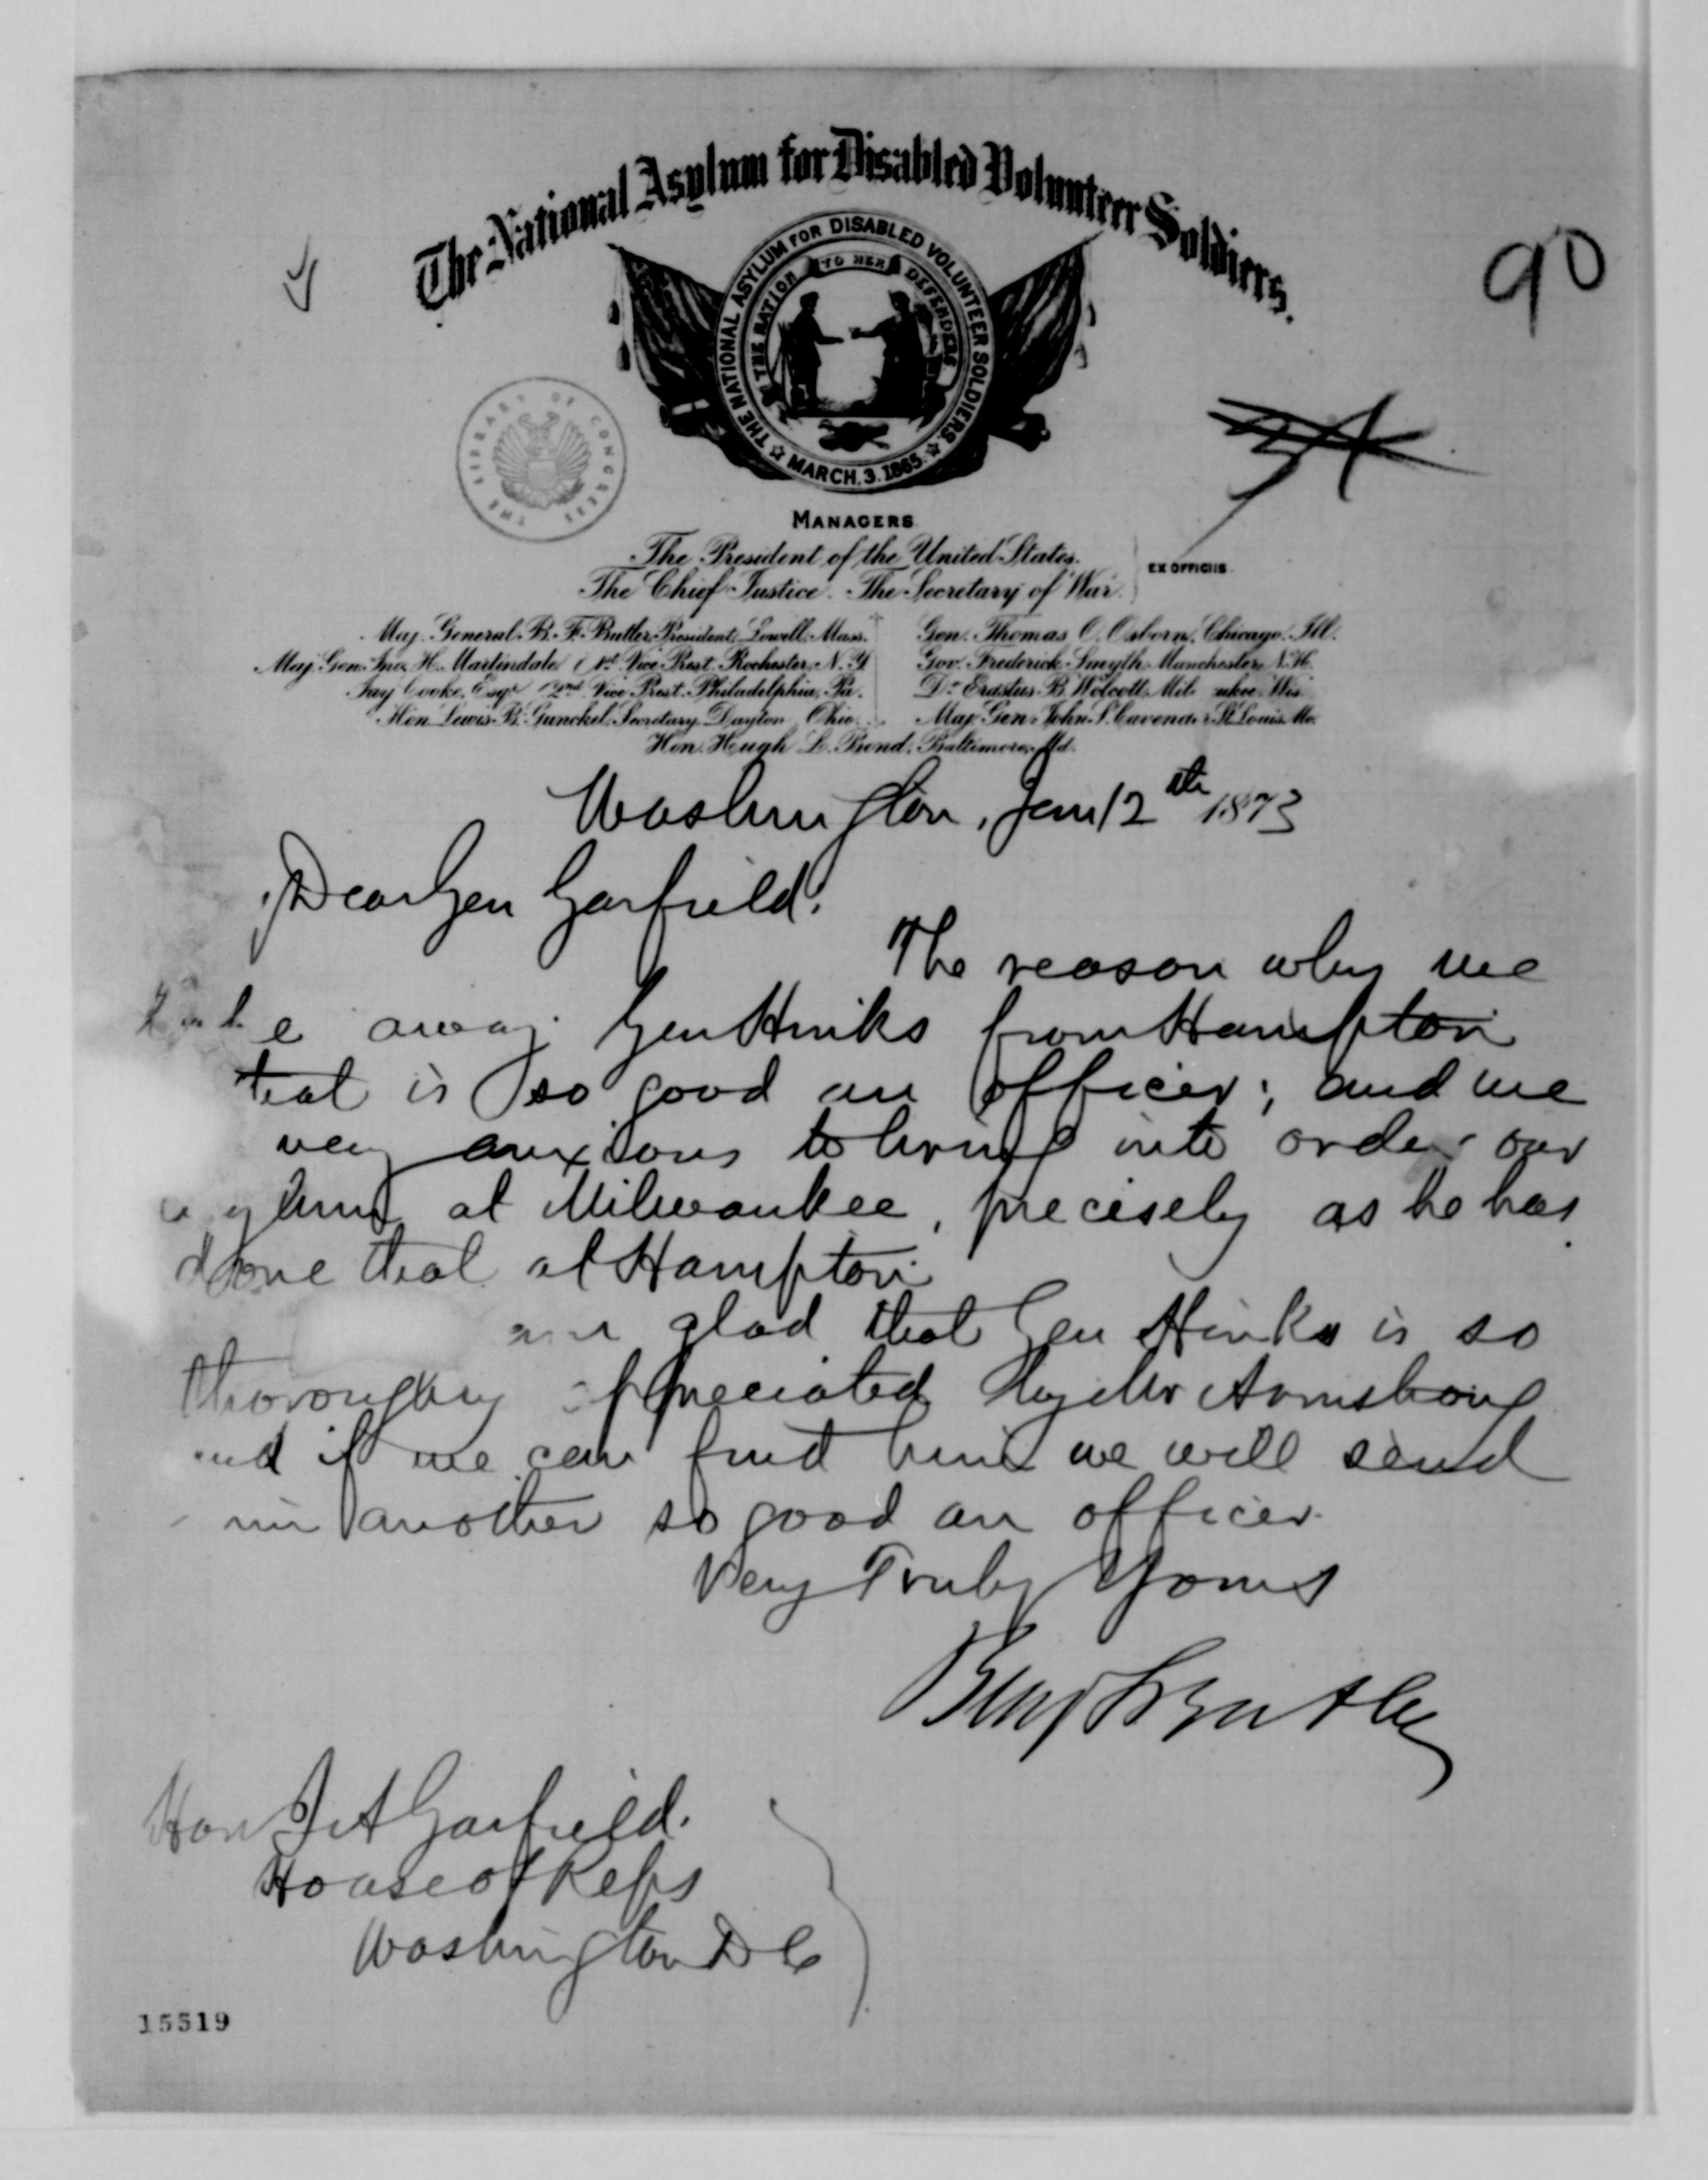 The National Asylum for Disabled Volunteer Soldiers.
90
THE NATIONAL ASYLUM FOR DISABLED VOLUNTEER SOLDIERS.
THE NATION TO HER DEFENDERS
MARCH. 3. 1865.
THE LIBRARY OF CONGRESS
MANAGERS
The President of the United States.
The Chief Justice. The Secretary of War.
EX OFFICIIS
Maj. General B. F. Butler, President, Lowell, Mass.
Maj. Gen. Jno. H. Martindale, 1st Vice Prest. Rochester, N.Y
Jay Cooke, Esqr. 2nd Vice Prest. Philadelphia, Pa.
Hon. Lewis B. Gunckel, Secretary, Dayton, Ohio.
Gen. Thomas O. Osborn, Chicago, Ill.
Gov. Frederick Smyth, Manchester, N.H.
Dr. Erastus B. Wolcott, Mil ukee, Wis
Maj. Gen. John S. Cavender, St Louis, Mo.
Hon. Hugh L. Bond, Baltimore, Md.
Washington, Jan 12th 1873
Dear Gen Garfield.
The reason why we
take away Gen Hinks from Hampton
that is so good an officer; and we
very anxious to bring into order our
asylum at Milwaukee, precisely as he has
done that at Hampton
am glad that Gen Hinks is so
thoroughly appreciated by Mr Armstrong
and if we can find him we will send
another so good an officer.
Very Truly Yours
Benj F Butler
Hon J A Garfield.
House of Reps
Washington D C
15519